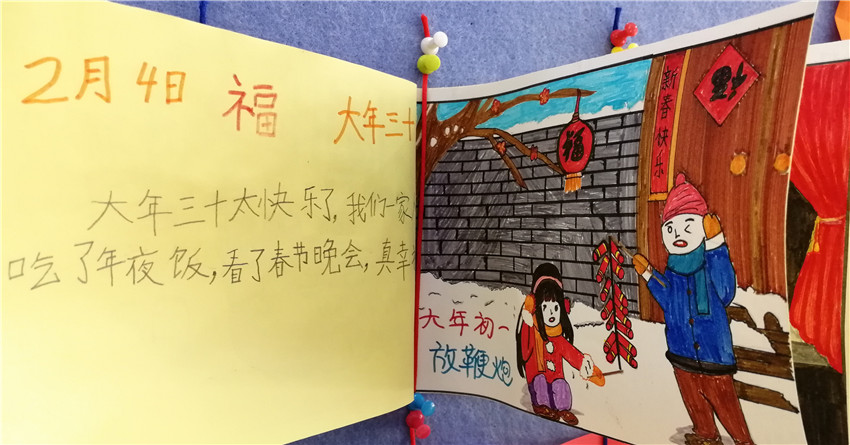 2月4日
福
大年三十
大年三十太快乐了,我们一家
吃了年夜饭,看了春节晚会,真幸
新春快乐
福
福
大年初一
放鞭炮